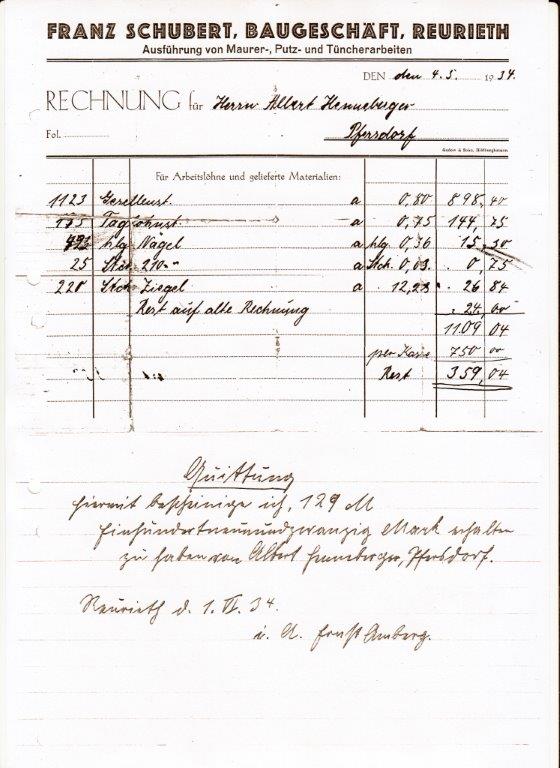 FRANZ SCHUBERT, BAUGESCHÄFT, REURIETH
Ausführung von Maurer-, Putz- und Tüncherarbeiten
DEN den 4.5. 1934.
RECHNUNG für Herrn Albert Henneberger
Fol. Pfersdorf
Für Arbeitslöhne und gelieferte Materialien:
1123 Gesellenst. a 0,80 898,40
Taglohnst. a 0,75 144,75
Nägel a 0,36 15,30
25 Stck. 210 a Stck. 0,03 0,75
220 Stck Ziegel a 26 84
Rest auf alte Rechnung 24,00
1109 04
per Kasse 750 00
Rest 359,04
Quittung
Hiermit bescheinige ich, 129 M
Einhundertneunundzwanzig Mark erhalten
zu haben von Albert Henneberger, Pfersdorf.
Reurieth d. 1. VI. 34.
i. A. Ernst Amberg.